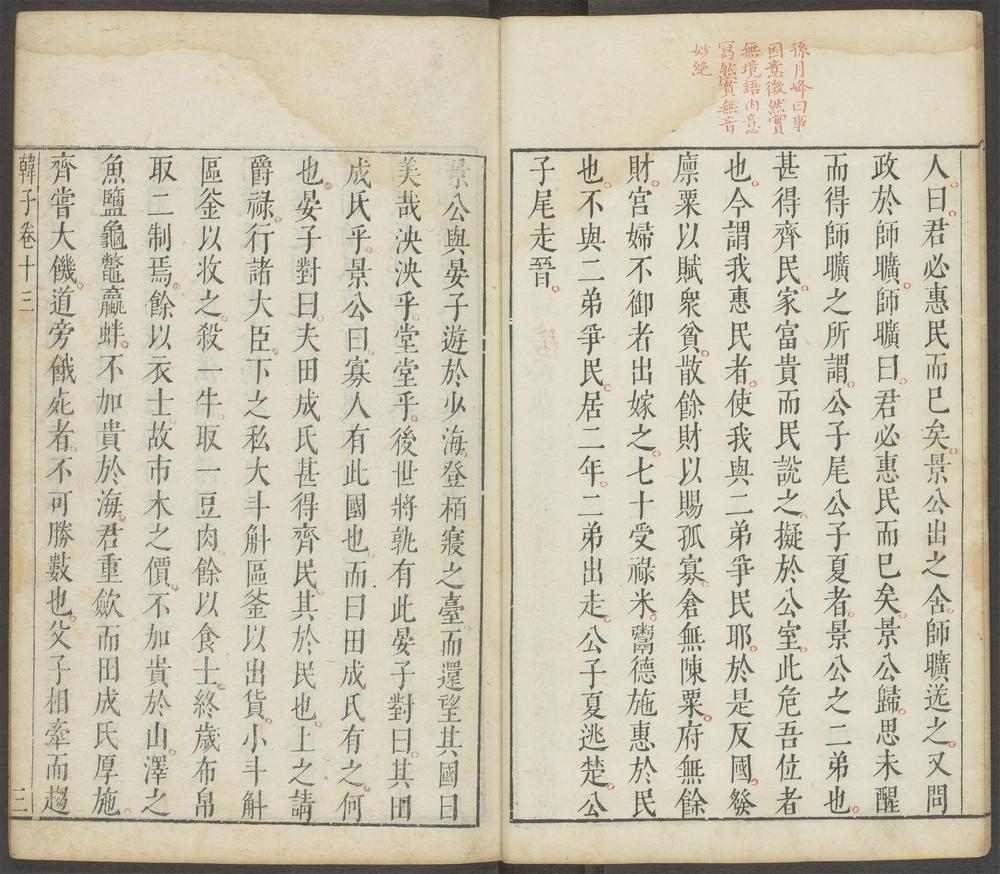 孫月峰曰事
因意微然實
無境語由意
寫然實無音
妙絶
人曰君必惠民而已矣景公出之舍師曠送之又問
政於師曠師曠曰君必惠民而已矣景公歸思未醒
而得師曠之所謂公子尾公子夏者景公之二弟也
甚得齊民家富貴而民說之擬於公室此危吾位者
也今謂我惠民者使我與二弟爭民耶於是反國發
廪粟以賦衆貧散餘財以賜孤寡倉無陳粟府無餘
財宮婦不御者出嫁之七十受祿米鬻德施惠於民
也不與二弟爭民居二年二弟出走公子夏逃楚公
子尾走晉
景公與晏子遊於少海登栢寢之臺而還望其國曰
美哉泱泱乎堂堂乎後世將孰有此晏子對曰其田
成氏乎景公曰寡人有此國也而曰田成氏有之何
也晏子對曰夫田成氏甚得齊民其於民也上之請
爵祿行諸大臣下之私大斗斛區釜以出貨小斗斛
區釜以收之殺一牛取一豆肉餘以食士終歲布帛
取二制焉餘以衣士故市木之價不加貴於山澤之
魚鹽龜鼈蠃蚌不加貴於海君重歛而田成氏厚施
齊嘗大饑道旁餓死者不可勝數也父子相牽而趨
韓子卷十三
三